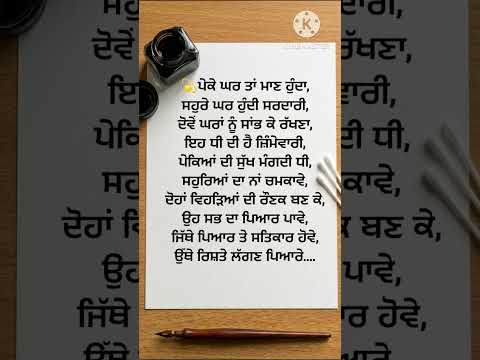 💫ਪੇਕੇ ਘਰ ਤਾਂ ਮਾਣ ਹੁੰਦਾ,
ਸਹੁਰੇ ਘਰ ਹੁੰਦੀ ਸਰਦਾਰੀ,
ਦੋਵੇਂ ਘਰਾਂ ਨੂੰ ਸਾਂਭ ਕੇ ਰੱਖਣਾ,
ਇਹ ਧੀ ਦੀ ਹੈ ਜ਼ਿੰਮੇਵਾਰੀ,
ਪੇਕਿਆਂ ਦੀ ਸੁੱਖ ਮੰਗਦੀ ਧੀ,
ਸਹੁਰਿਆਂ ਦਾ ਨਾਂ ਚਮਕਾਵੇ,
ਦੋਹਾਂ ਵਿਹੜਿਆਂ ਦੀ ਰੌਣਕ ਬਣ ਕੇ,
ਉਹ ਸਭ ਦਾ ਪਿਆਰ ਪਾਵੇ,
ਜਿੱਥੇ ਪਿਆਰ ਤੇ ਸਤਿਕਾਰ ਹੋਵੇ,
ਉੱਥੇ ਰਿਸ਼ਤੇ ਲੱਗਣ ਪਿਆਰੇ....